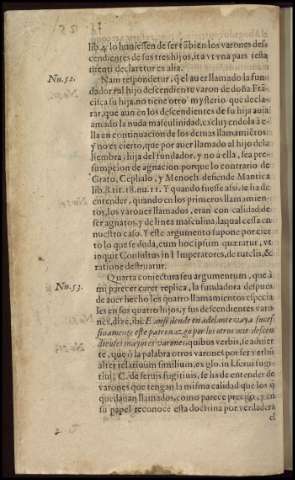 lib. y lo huuiessen de ser tãbiẽ los varones des
cendientes de sus tres hijos, ita vt vna pars testa
menti declaret ex alia.
Nu. 52.
Nam respondetur, q̃ el auer llamado la funda
dora al hijo descendiente varon de doña Frã
cisca su hija, no tiene otro mysterio que decla
rar, que aun en los descendientes de su hija auia
amado la nuda masculinidad, excluyendola à
ella en continuacion de los demas llamamiẽtos
y no es cierto, que por auer llamado al hijo de la
hembra, hija del fundador, y no à ella, sea pre
sumpcion de agnacion, porque lo contrario de
Grato, Cephalo, y Menoch. defiende Mantica
lib. 8. tit. 18. nu. 11. Y quando fuesse assi, se ha de
entender, quando en los primeros llamamien
tos, los varones llamados, eran con calidad de
ser agnatos, y de linea masculina, la qual cessa en
nuestro caso. Y este argumento supone por cier
to lo que se duda, cum hoc ipsum quæratur, vt
inquit Consultus in l. Imperatores,
ratione destruatur.
Nu. 53.
Quarta coniectura seu argumentum, que à
mi parecer caret replica, la fundadora despues
de auer hecho los quatro llamamientos especia
les en sus quatro hijos, y sus descendientes varo
nes, dize, ibi: E ansi dende en adelante vaya succes
siuamente este patronazgo por los otros mis descen
dientes mayores varones, quibus verbis, se aduier
te, que õ la palabra otros varones por ser verbũ
alterius relatiuum similium, ex glo. in l. serui fugi
tiui, C. de seruis fugitiuis, se ha de entender de
varones que tengan la misma calidad que los q̃
quedauan llamados, como parece preciso, y en
su papel reconoce esta doctrina por verdadera
el